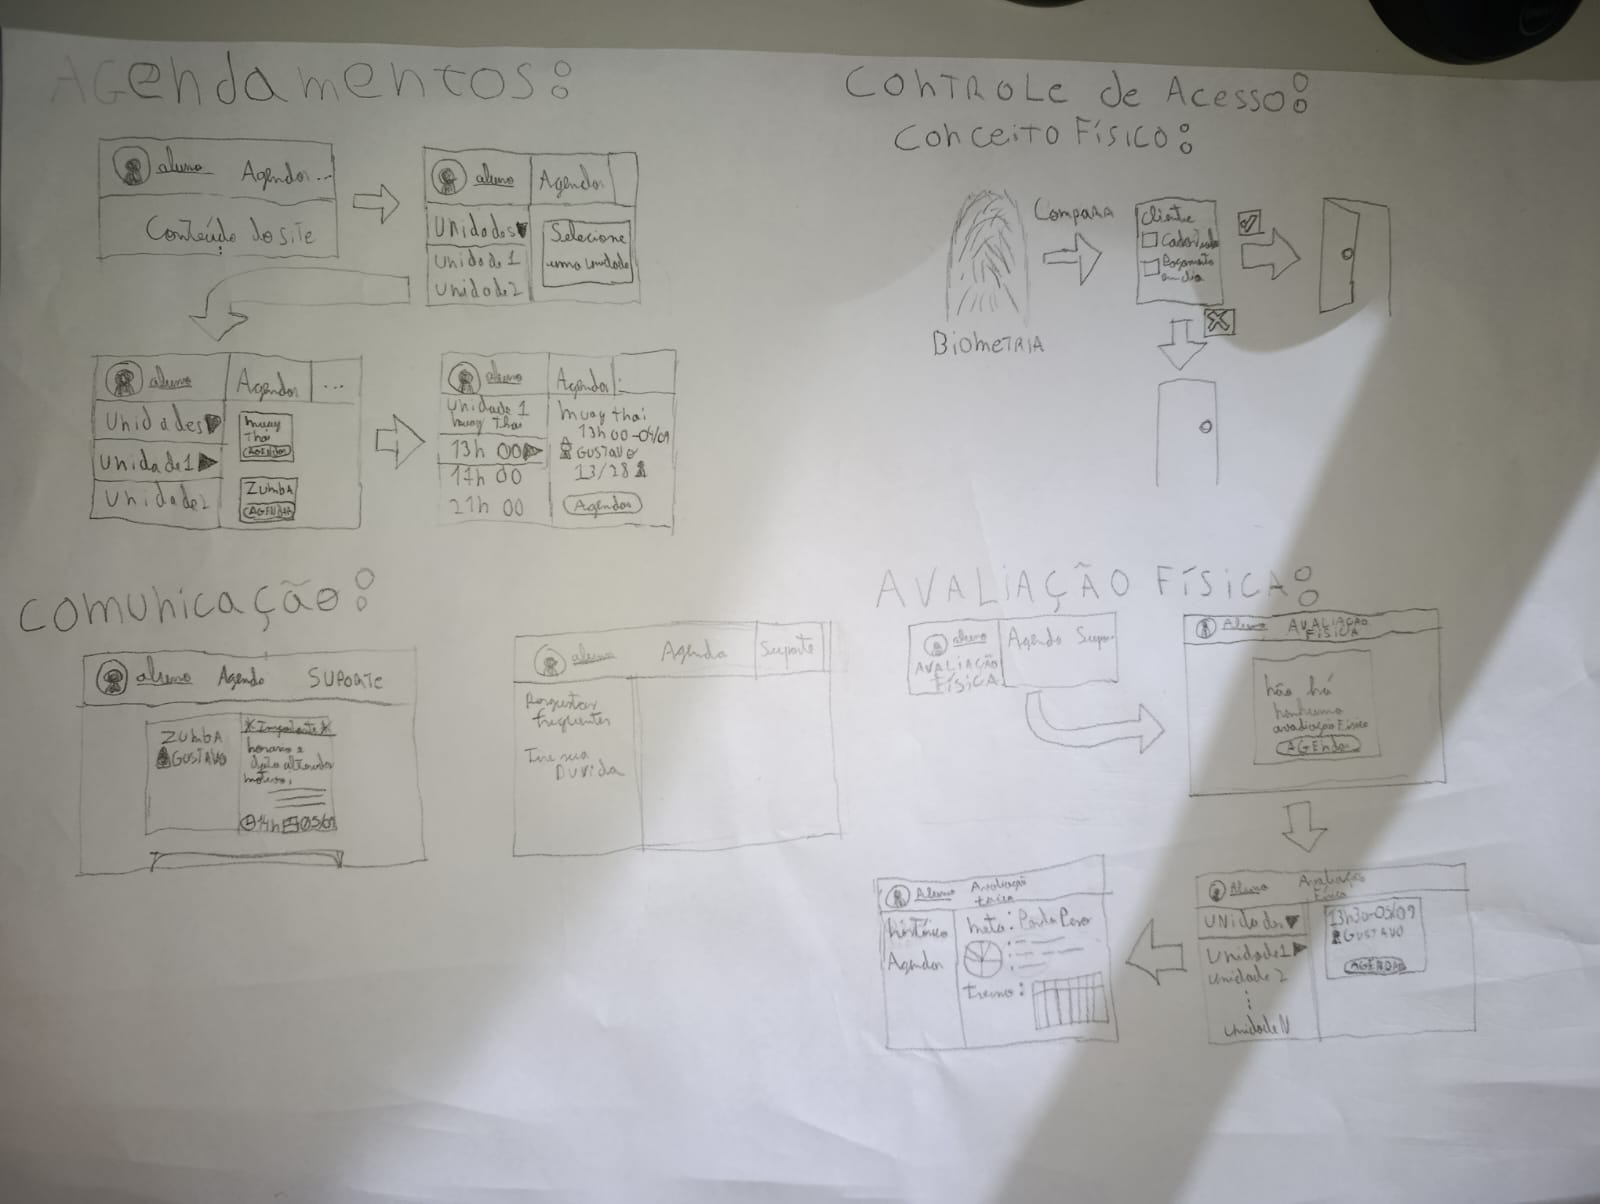 AGendamentos:
aluno Agendar ...
Conteúdo do site
aluno Agendar
Unidades
Unidade 1
Unidade 2
Selecione
uma unidade
aluno Agendar ...
Unidades
Unidade 1
Unidade 2
muay
Thai
ZUMBA
AGENDAR
aluno Agendar
Unidade 1
muay Thai
13h 00
17h 00
21h 00
muay thai
13h 00-04/09
GUSTAVO
13/28
Agendar
CONTROLE de Acesso:
CONCEITO FÍSICO:
BIOMETRIA
Compara
Cliente
Cadastrado
Pagamento
em dia
COMUNICAÇÃO:
aluno Agenda SUPORTE
ZUMBA
GUSTAVO
*Importante*
motivo:
14h 05/09
aluno Agenda Suporte
Perguntas
frequentes
Tire sua
Duvida
AVALIAÇÃO FÍSICA:
aluno Agenda Supor-
AVALIAÇÃO
FÍSICA
Aluno AVALIAÇÃO
FÍSICA
não há
nenhuma
avaliação Física
AGEndar
Aluno Avaliação
Física
UNidades
Unidade 1
Unidade 2
Unidade N
13h30-05/09
GUSTAVO
AGENDAR
Aluno Avaliação
Física
histórico
Agendar
meta: Perda Peso
treino: